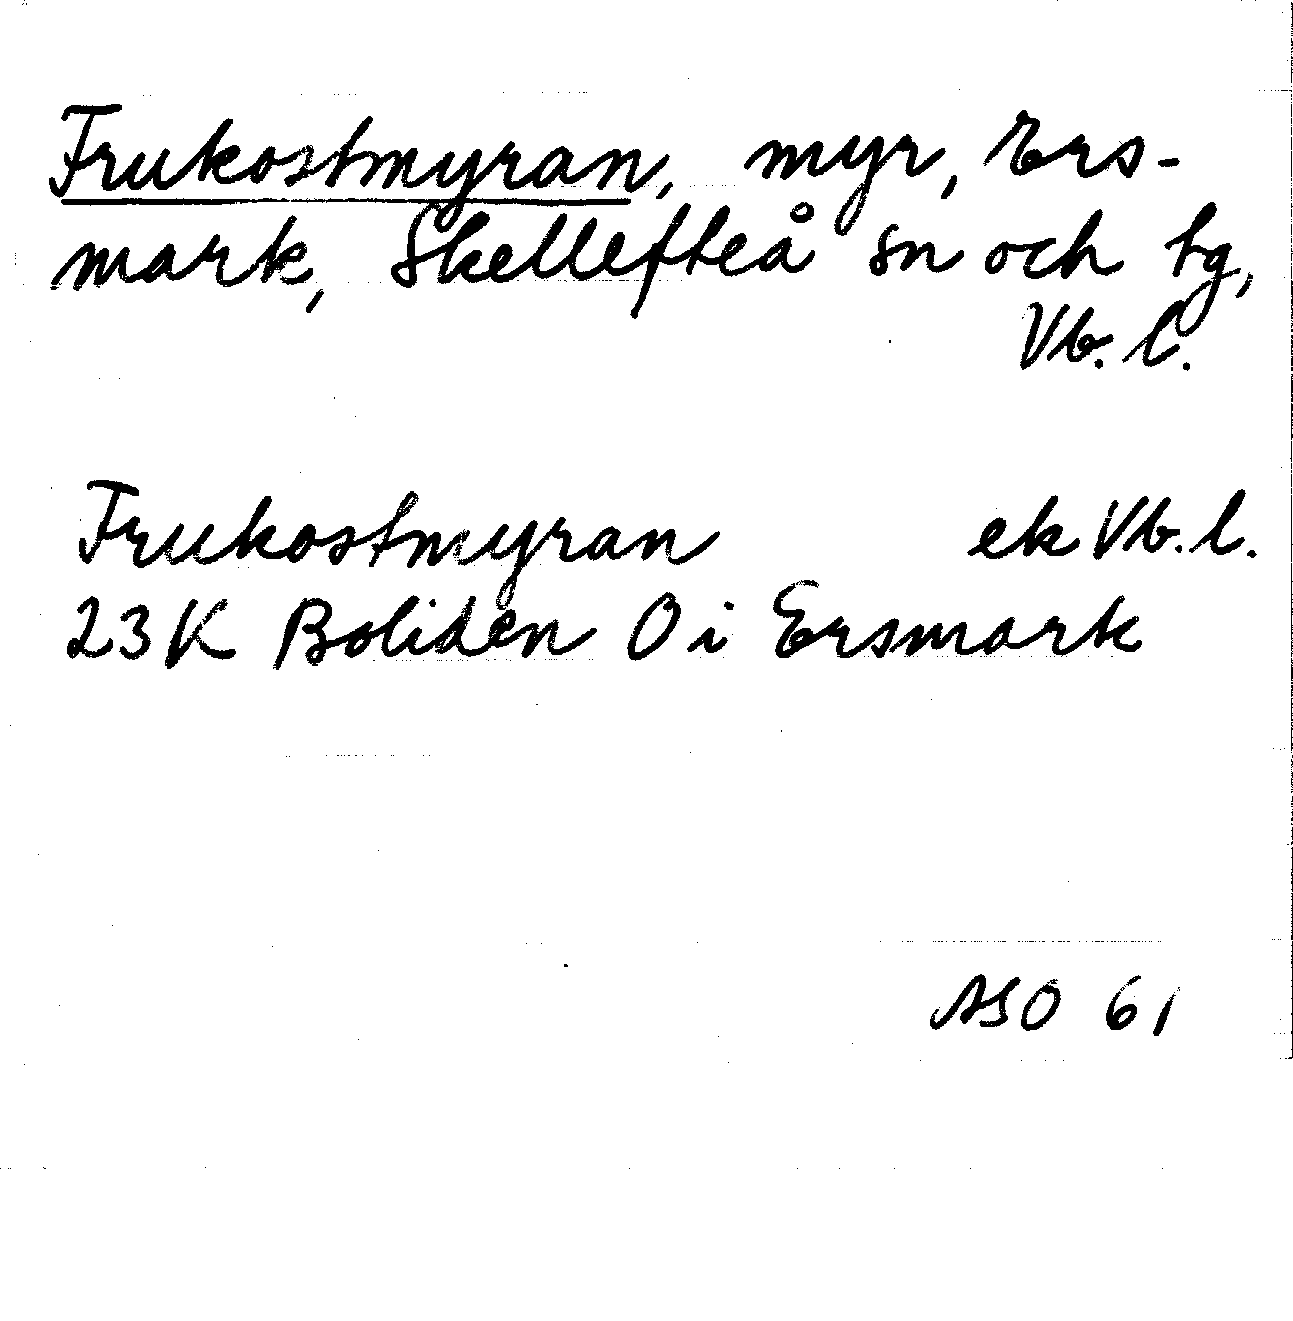 Frukostmyran, myr, Ers-
mark, Skellefteå sn och tg,
Vb. l.
Frukostmyran ek Vb. l.
23K Boliden O i Ersmark
ASO 61